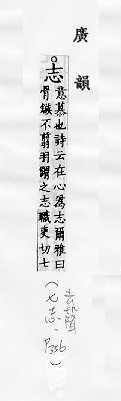 廣韻
志
意慕也詩云在心爲志爾雅曰
骨鏃不翦羽謂之志職吏切七
(去聲
七志．
P356.)